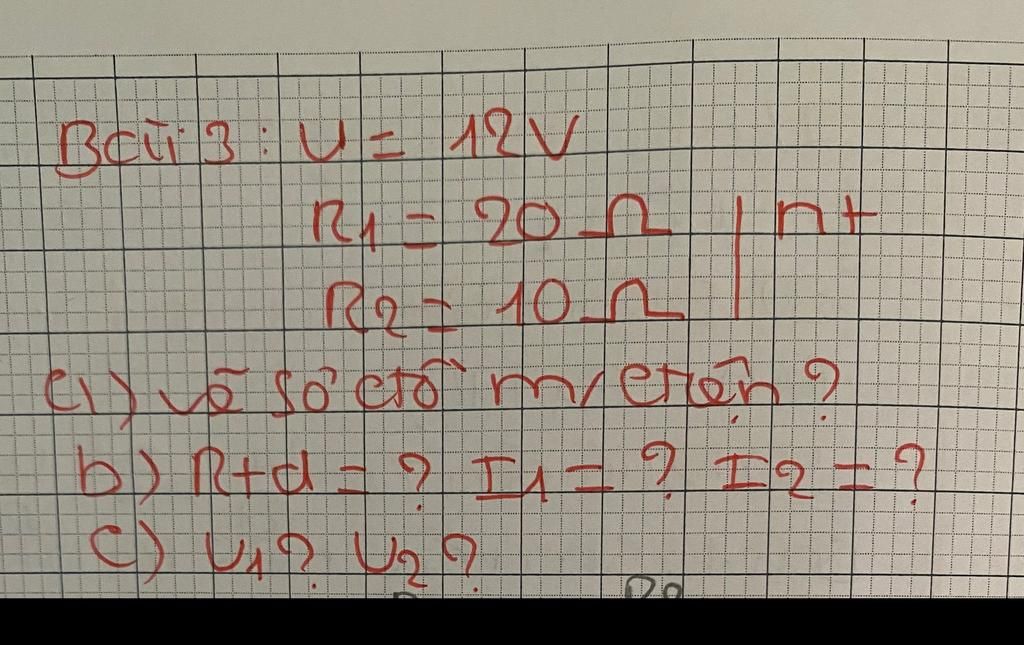 Bài 3: U = 12V
R1 = 20 Ω | nt
R2 = 10 Ω
a) vẽ sơ đồ m/điện?
b) Rtđ = ? I1 = ? I2 = ?
c) U1? U2?